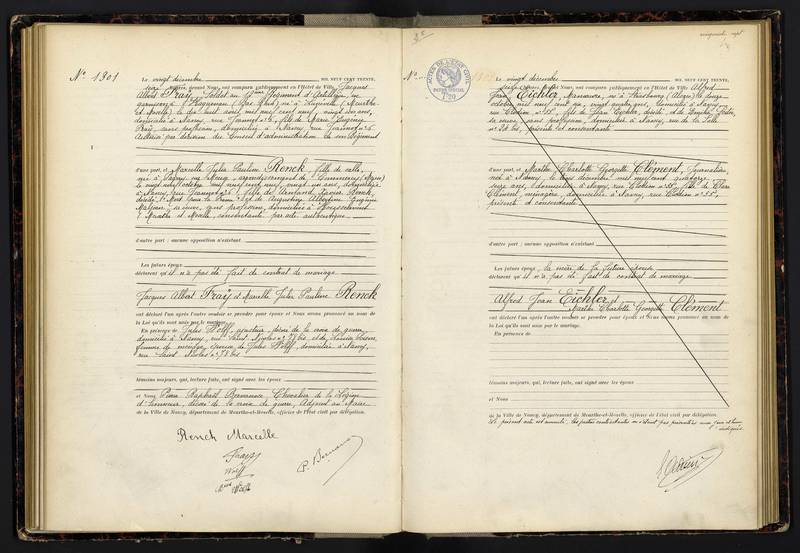 N° 1301
Le vingt décembre MIL NEUF CENT TRENTE,
heures, devant Nous, ont comparu publiquement en l'Hôtel de Ville, Jacques
Albert Frais, Soldat au Régiment d'Artillerie, en
garnison à Haguenau (Bas Rhin) né à Lunéville (Meurthe
et Moselle) le dix huit avril mil neuf cent neuf, vingt un ans,
domicilié à Nancy, rue Jeannot n° 6, fils de Marie Eugénie
Frais, sans profession, domiciliée à Nancy, rue Jeannot n° 6
du Conseil d'administration de son Régiment
d'une part, et Marcelle Julie Pauline Renck, fille de salle,
née à Pagny sur Meuse, arrondissement de Commercy (Meuse)
le vingt neuf octobre mil neuf cent neuf, vingt un ans, domiciliée
à Nancy, rue Jeannot n° 6, fille de Armand Xavier Renck,
décédé, Mort pour la France et de Augustine Albertine Eugénie
sa veuve, sans profession, domiciliée à
(Meurthe et Moselle, consentante par acte authentique.
d'autre part ; aucune opposition n'existant
Les futurs époux
déclarent qu'il n'a pas été fait de contrat de mariage
Jacques Albert Frais et Marcelle Julie Pauline Renck
ont déclaré l'un après l'autre vouloir se prendre pour époux et Nous avons prononcé au nom de
la Loi qu'ils sont unis par le mariage.
En présence de Jules Wolff, décoré de la croix de guerre,
domicilié à Nancy, rue Saint Nicolas n° 78 bis et de Louise
femme de ménage, épouse de Jules Wolff, domiciliée à Nancy,
rue Saint Nicolas n° 78 bis
témoins majeurs, qui, lecture faite, ont signé avec les époux
et Nous Pierre Raphaël Chevalier de la Légion
d'honneur, décoré de la croix de guerre, Adjoint au Maire
de la Ville de Nancy, département de Meurthe-et-Moselle, officier de l'état civil par délégation.
Renck Marcelle
Frais
Wolff
Mme Wolff
N°
ACTES DE L'ETAT CIVIL
Le vingt décembre MIL NEUF CENT TRENTE,
heures, devant Nous, ont comparu publiquement en l'Hôtel de Ville Alfred
Jean Eichler, Manœuvre, né à Strasbourg (Alsace) le douze
octobre mil neuf cent six, vingt quatre ans, domicilié à Nancy,
n° 55, fils de Jean Eichler, décédé, et de
sa veuve, sans profession, domiciliée à Nancy, rue de la Salle
présente et consentante
d'une part, et Marthe Charlotte Georgette Clément, Journalière
née à Nancy, le décembre mil neuf cent quatorze,
seize ans, domiciliée à Nancy, rue n° 55, fille de
Clément, ménagère, domiciliée à Nancy, rue n° 55,
présente et consentante
d'autre part ; aucune opposition n'existant
Les futurs époux, la mère de la future épouse
déclarent qu'il n'a pas été fait de contrat de mariage
Alfred Jean Eichler et
Marthe Charlotte Georgette Clément
ont déclaré l'un après l'autre vouloir se prendre pour époux et Nous avons prononcé au nom de
la Loi qu'ils sont unis par le mariage.
En présence de
témoins majeurs, qui, lecture faite, ont signé avec les époux
et Nous
de la Ville de Nancy, département de Meurthe-et-Moselle, officier de l'état civil par délégation.
Le présent acte est annulé, les parties contractantes ne s'étant pas présentées aux jour et heure
indiqués.